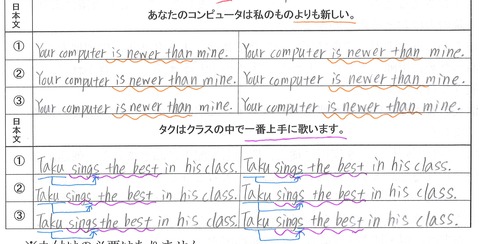 日本文 あなたのコンピュータは私のものよりも新しい。
① Your computer is newer than mine. Your computer is newer than mine.
② Your computer is newer than mine. Your computer is newer than mine.
③ Your computer is newer than mine. Your computer is newer than mine.
日本文 タクはクラスの中で一番上手に歌います。
① Taku sings the best in his class. Taku sings the best in his class.
② Taku sings the best in his class. Taku sings the best in his class.
③ Taku sings the best in his class. Taku sings the best in his class.